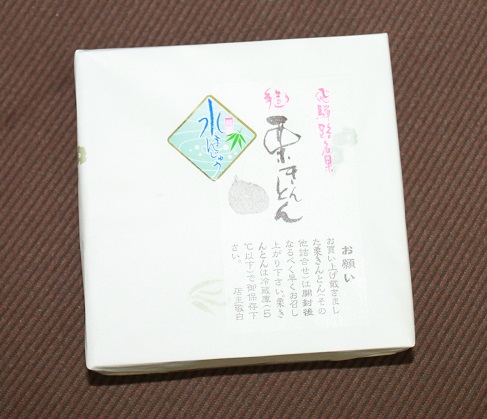 飛騨路名菓
栗きんとん
水まんじゅう
お願い
お買い上げ戴きまし
た栗きんとん(その
他詰合せ)は開封後
なるべく早くお召し
上がり下さい。栗き
んとんは冷蔵庫(5
℃以下)で御保存下
さい。
店主敬白